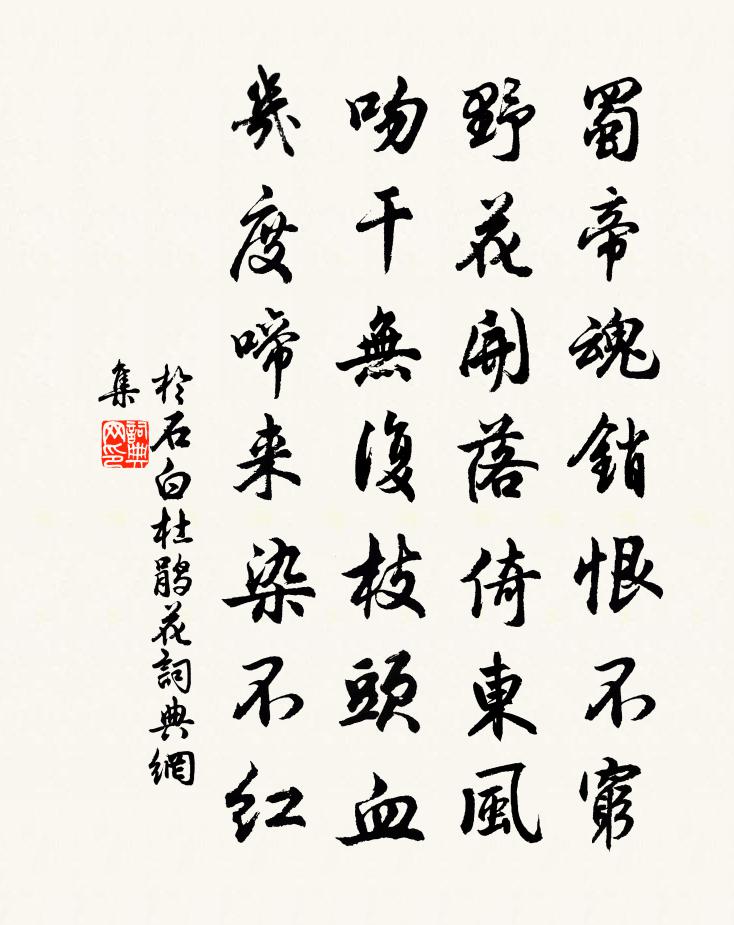 蜀帝魂銷恨不窮
野花開落倚東風
吻干無復枝頭血
幾度啼来染不紅
於石白杜鵑花詞典網
集
詞典
网印